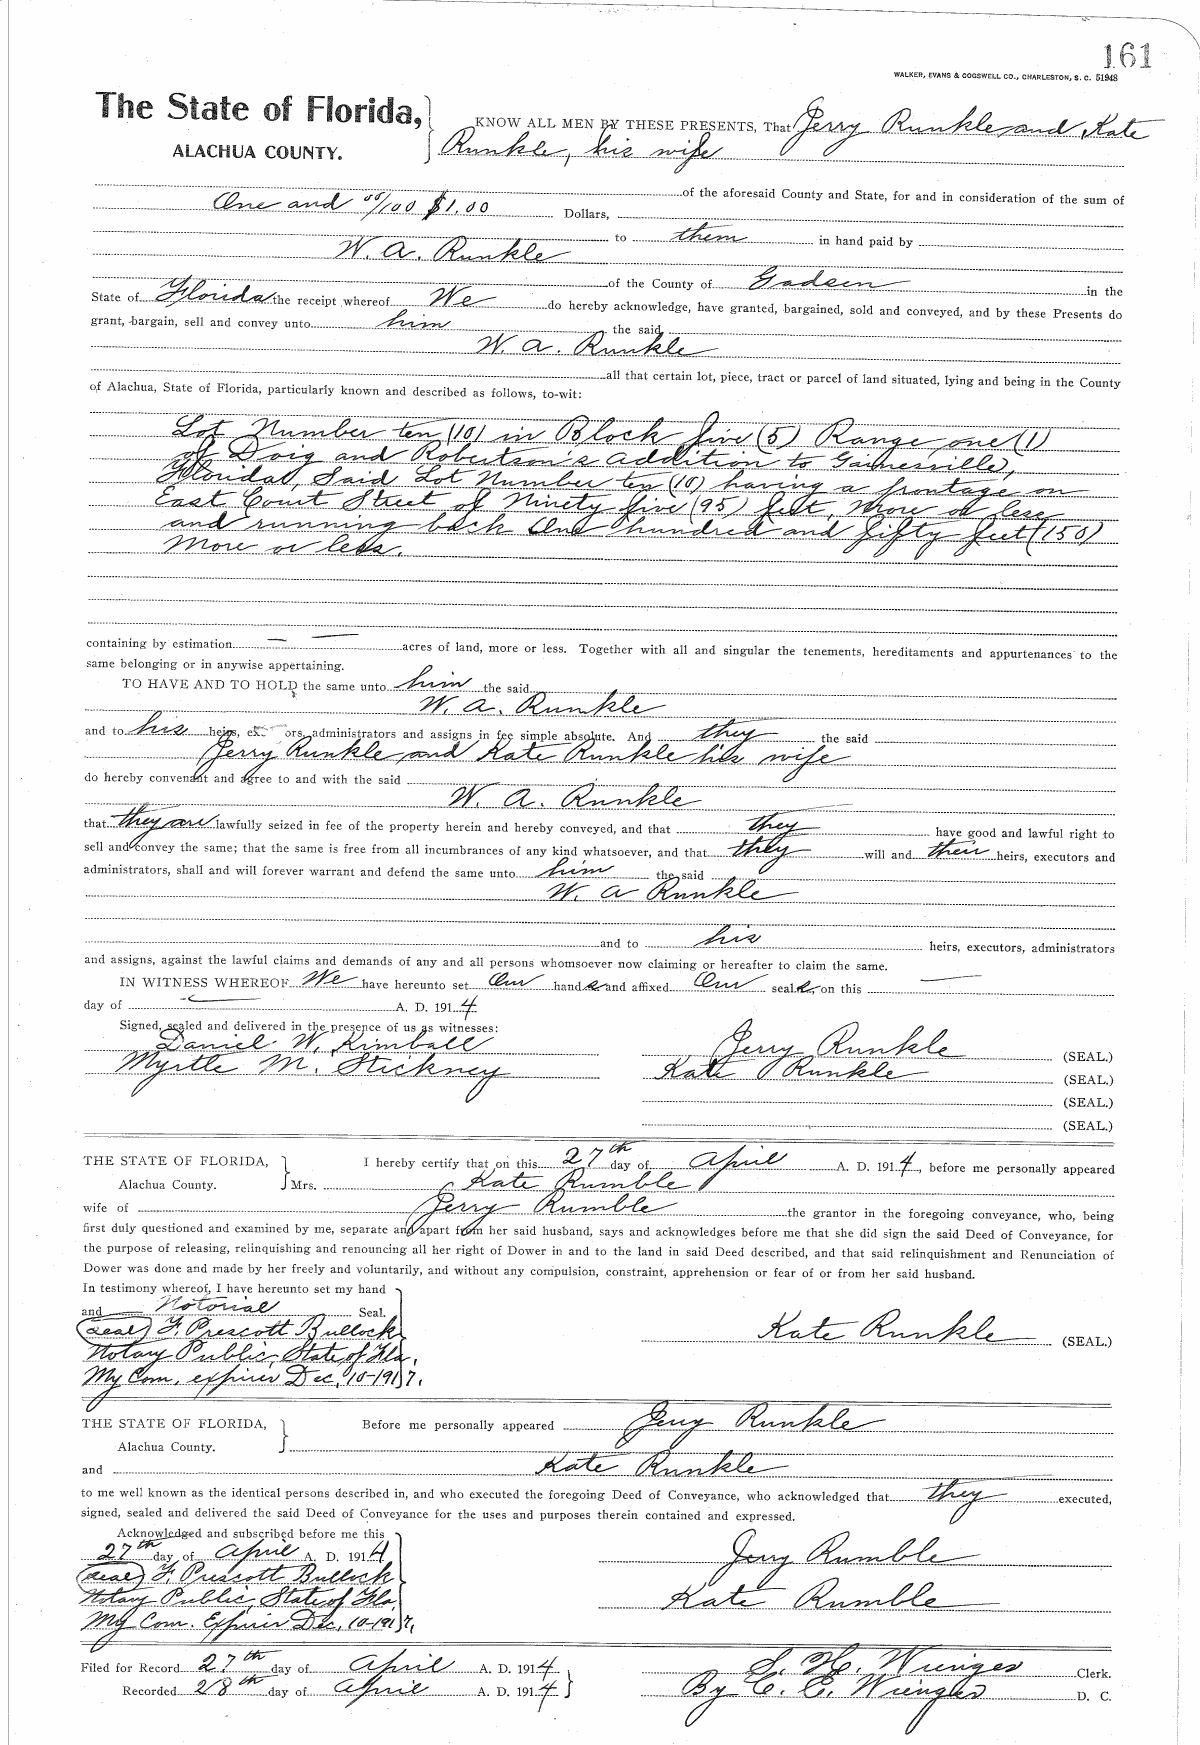 161
WALKER, EVANS & COGSWELL CO., CHARLESTON, S. C. 51948
The State of Florida,
ALACHUA COUNTY.
KNOW ALL MEN BY THESE PRESENTS, That Jerry Runkle and Kate
Runkle, his wife
of the aforesaid County and State, for and in consideration of the sum of
One and 00/100 $1.00 Dollars,
to them in hand paid by
W. A. Runkle
of the County of Gadsen in the
State of Florida the receipt whereof We do hereby acknowledge, have granted, bargained, sold and conveyed, and by these Presents do
grant, bargain, sell and convey unto him the said
W. A. Runkle
all that certain lot, piece, tract or parcel of land situated, lying and being in the County
of Alachua, State of Florida, particularly known and described as follows, to-wit:
Lot Number ten (10) in Block five (5) Range one (1)
of Doig and Robertson's addition to Gainesville,
Florida, Said Lot Number ten (10) having a frontage on
East Court Street of Ninety five (95) feet, more or less
and running back One hundred and fifty feet (150)
More or less.
containing by estimation — — acres of land, more or less. Together with all and singular the tenements, hereditaments and appurtenances to the
same belonging or in anywise appertaining.
TO HAVE AND TO HOLD the same unto him the said
W. A. Rumkle
and to his heirs, ex ors, administrators and assigns in fee simple absolute. And they the said
Jerry Runkle and Kate Runkle his wife
do hereby convenant and agree to and with the said
W. A. Runkle
that they are lawfully seized in fee of the property herein and hereby conveyed, and that they have good and lawful right to
sell and convey the same; that the same is free from all incumbrances of any kind whatsoever, and that they will and their heirs, executors and
administrators, shall and will forever warrant and defend the same unto him the said
W. A Runkle
and to his heirs, executors, administrators
and assigns, against the lawful claims and demands of any and all persons whomsoever now claiming or hereafter to claim the same.
IN WITNESS WHEREOF We have hereunto set Our hands and affixed Our seals, on this —
day of — A. D. 1914
Signed, sealed and delivered in the presence of us as witnesses:
Daniel W. Kimball
Myrtle M. Stickney
Jerry Runkle (SEAL.)
Kate Runkle (SEAL.)
(SEAL.)
(SEAL.)
THE STATE OF FLORIDA,
Alachua County.
I hereby certify that on this 27th day of April A. D. 1914, before me personally appeared
Mrs. Kate Rumble
wife of Jerry Rumble the grantor in the foregoing conveyance, who, being
first duly questioned and examined by me, separate and apart from her said husband, says and acknowledges before me that she did sign the said Deed of Conveyance, for
the purpose of releasing, relinquishing and renouncing all her right of Dower in and to the land in said Deed described, and that said relinquishment and Renunciation of
Dower was done and made by her freely and voluntarily, and without any compulsion, constraint, apprehension or fear of or from her said husband.
In testimony whereof, I have hereunto set my hand
and Notorial Seal.
(seal) F. Prescott Bullock
Notary Public, State of Fla.
My Com. expires Dec. 10-1917.
Kate Runkle (SEAL.)
THE STATE OF FLORIDA,
Alachua County.
Before me personally appeared Jerry Runkle
and Kate Runkle
to me well known as the identical persons described in, and who executed the foregoing Deed of Conveyance, who acknowledged that they executed,
signed, sealed and delivered the said Deed of Conveyance for the uses and purposes therein contained and expressed.
Acknowledged and subscribed before me this
27th day of April A. D. 1914
(seal) F. Prescott Bullock
Notary Public, State of Fla.
My Com. Expires Dec. 10-1917.
Jerry Rumble
Kate Rumble
Filed for Record 27th day of April A. D. 1914
Recorded 28th day of April A. D. 1914
S. H. Wienges Clerk.
By C. E. Wienges D. C.